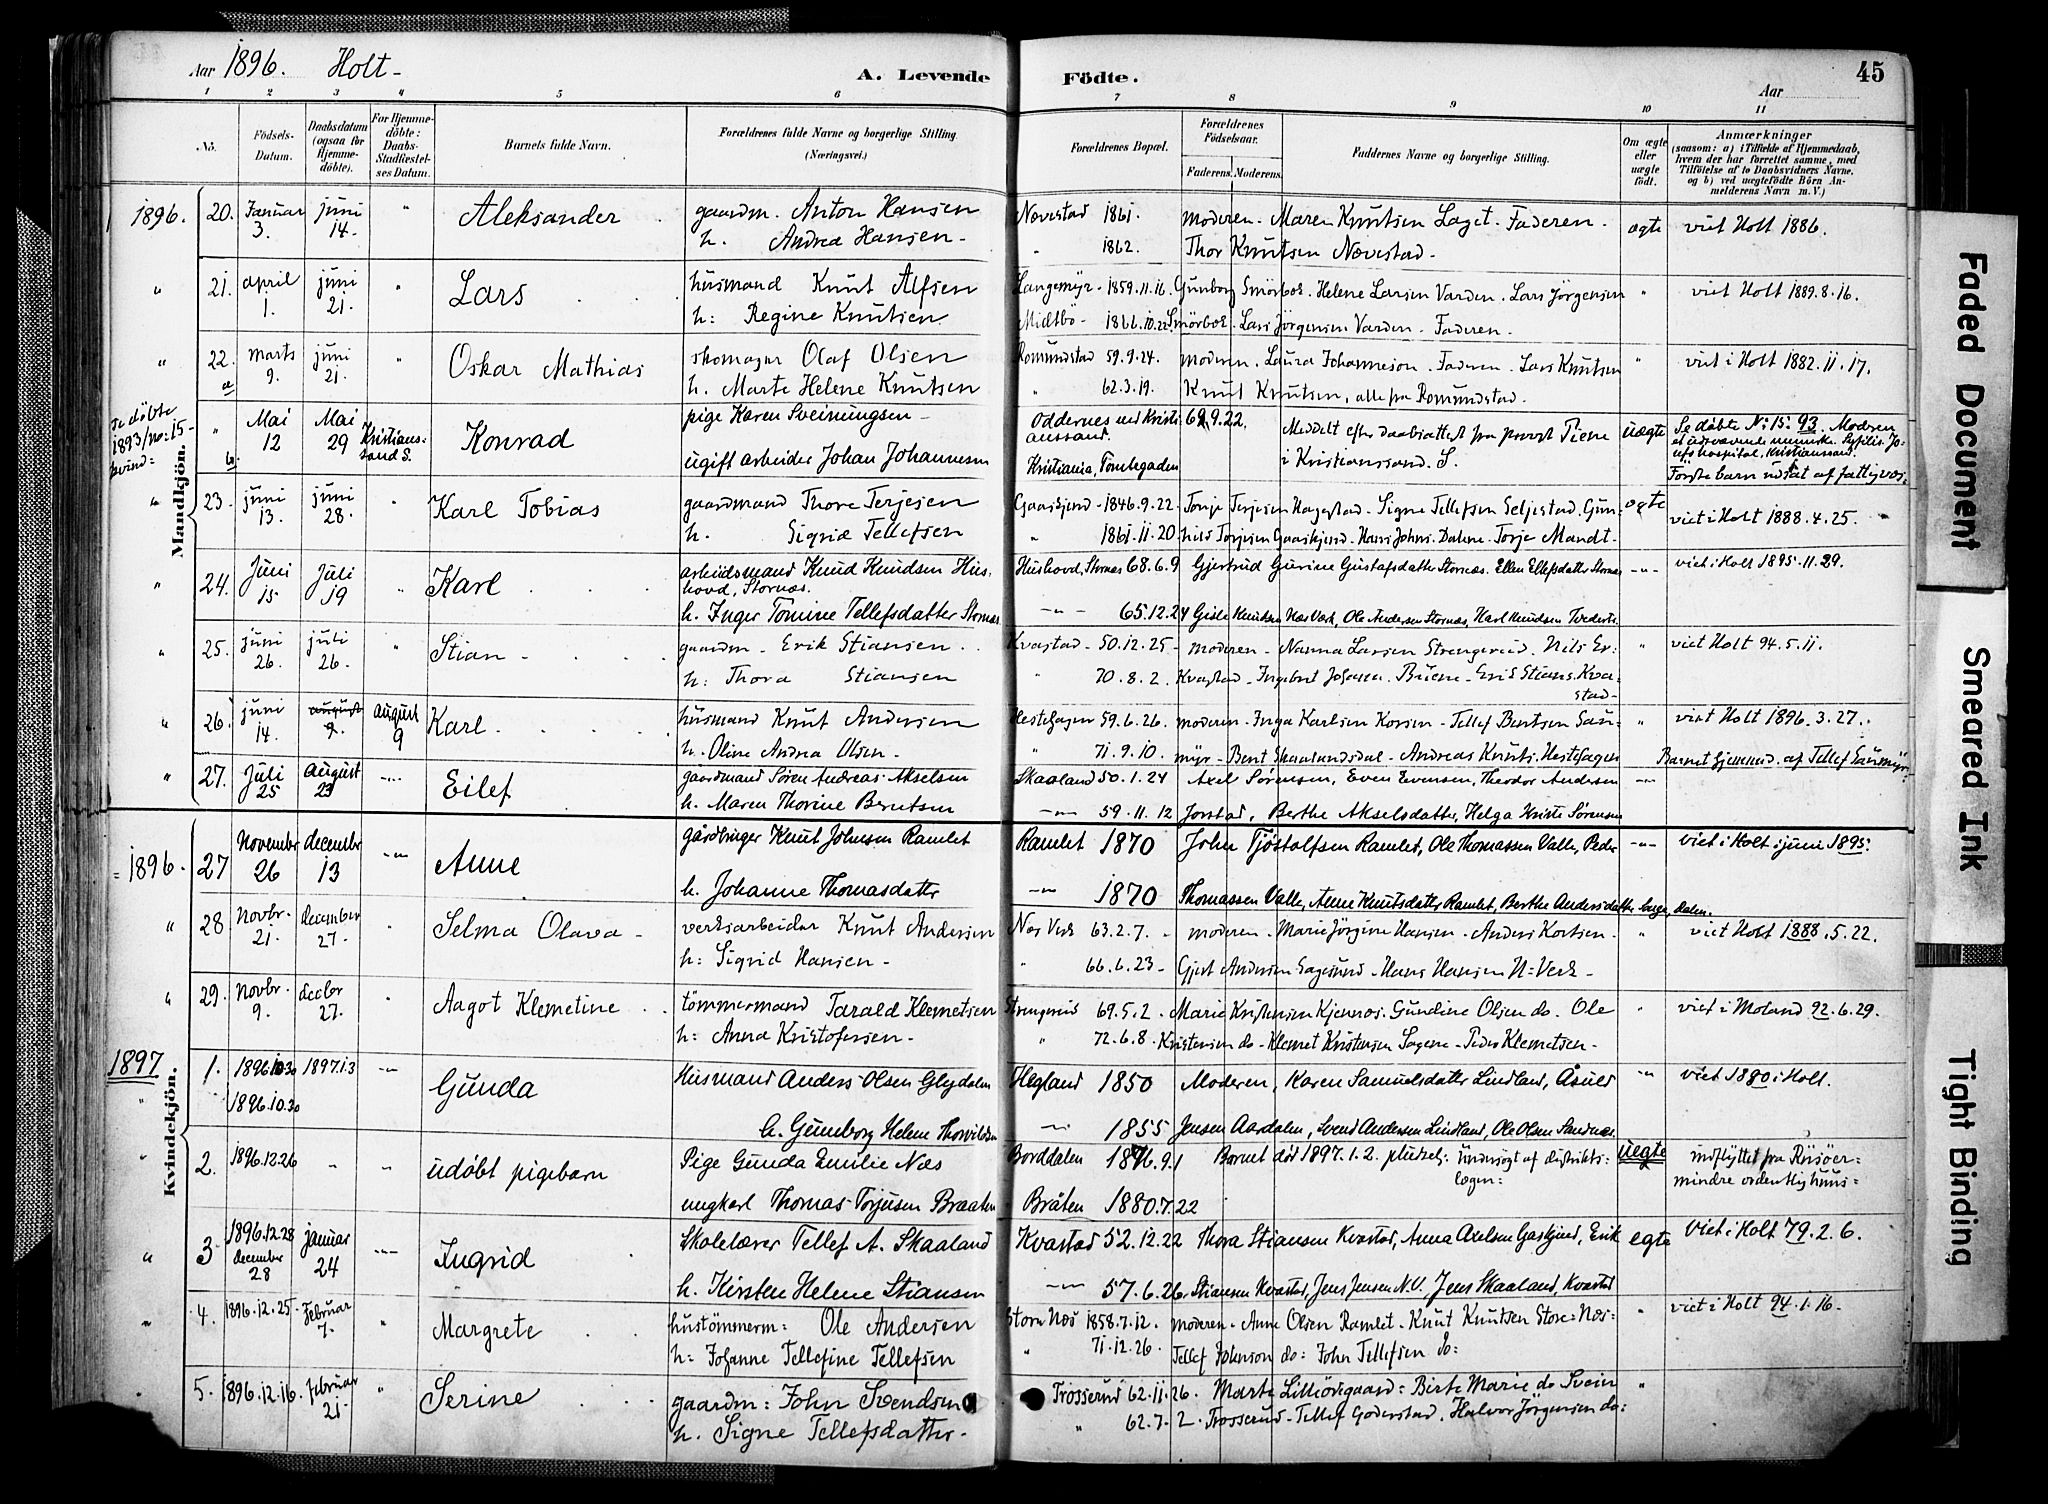 Aar 1896. Holt - A. Levende Födte. Aar 45
1 2 3 4 5 6 7 8 9 10 11
No. Födsels-Datum. Daabsdatum (ogsaa for Hjemme-döbte). For Hjemme-döbte: Daabs-Stadfæstel-ses Datum. Barnets fulde Navn. Forældrenes fulde Navne og borgerlige Stilling (Næringsvei.) Forældrenes Bopæl. Forældrenes Födselsaar. Faderens. Moderens. Faddernes Navne og borgerlige Stilling. Om ægte eller uægte födt. Anmærkninger (saasom: a) i Tilfælde af Hjemmedaab, hvem der har forrettet samme, med Tilföielse af to Daabsvidners Navne, og b) ved uægtefödte Börn An-melderens Navn m. V.)
Mandkjön.
1896. 20. Januar juni " Aleksander gaardm. Anton Hansen Navestad 1861. moderen - Maren Knutsen Laget. Faderen. ægte viet Holt 1886.
3. 14. h. Andrea Hansen - " 1862. Thor Knutsen Navestad -
" 21. april juni " Lars husmand Knut Alfsen Langemyr - 1859.11.16. Gunborg Smörbok. Helene Larsen Varden. Lars Jörgensen " viet Holt 1889.8.16.
1. 21. h: Regine Knutsen Midtbö - 1866.10.22. Smörbok. Lars Jörgensen Varden - Faderen -
" 22. marts juni " Oskar Mathias skomager Olaf Olsen Romundstad 59.9.24. moderen. Laura Johannesen. Faderen. Lars Knutsen " viet i Holt 1882.11.17.
a 9. 21. h. Marte Helene Knutsen " 62.3.19. Knut Knutsen, alle fra Romundstad.
se döbte 1893/no: 15 - kvind: " b Mai 12 Mai 29 Kristians-sand S. Konrad pige Karen Sveinungsen - Oddernes ved Kristi-anssand. 9.22. Meddelt efter daabsattest fra provst Tiene uægte Se döbte N: 15. 93. Modren
ugift arbeider Johan Johannesen Kristiania, Tomtegaden i Kristianssand. S. Förste barn udsat af fattigves.
" 23. juni juni " Karl Tobias gaardmand Thore Terjesen Gaaskjend - 1846.9.22 - Tonje Terjesen Hagestad - Signe Tellefsen Seljestad. Gun- ægte viet i Holt 1888.4.25.
13. 28. h. Sigrid Tellefsen " 1861.11.20. hild Torjesen Gaaskjend. Hans Johns. Dalene - Torje Mandt -
" 24. Juni Juli " Karl arbeidsmand Knud Knudsen Hus-hovd, Stornæs. Hushovd, Stornæs 68.6.9 Gjertrud Gurine Gustafsdatter Stornæs. Ellen Ellefsdatter Stornæs -"- viet i Holt 1895.11.29.
15 19 h. Inger Tomine Tellefsdatter Stornæs -"- 65.12.24 Gisle Knudsen Næs Værk, Ole Andersen Stornæs, Karl Knudsen
" 25. juni juli " Stian - gaardm - Erik Stiansen. Kvastad - 50.12.25 - moderen - Nanna Larsen Strengereid. Nils Er: " viet Holt 94.5.11.
26. 26. h: Thora Stiansen " 70.8.2. Kvastad - Ingebret Johnsen - Erik Stians. Kva-stad -
" 26. juni august 9. august 9 Karl. husmand Knut Andersen Hestehagen 59.6.26. moderen. Inga Karlsen Korsen - Tellef Bentsen Sau: " viet Holt 1896.3.27.
14. h. Oline Andrea Olsen - " 71.9.10. myr - Bent Skaalandsdal - Andreas Knuts. Hestehagen Barnet hjemmed. af Tellef Saumyr.
" 27. Juli August -"- Eilef gaardmand Sören Andreas Akselsen Skaaland 50.1.24 Axel Sörensen, Even Evensen, Theodor Andersen -"-
25 23 h. Maren Thorine Berntsen -"- 59.11.12 Jorstad, Berthe Akselsdatter, Helga Kristi Sörensen
Kvindekjön.
1896. 27 November december -"- Anne gårdbruger Knut Johnsen Ramlet Ramlet 1870 John Tjöstolfsen Ramlet, Ole Thomassen Valle, Peder -"- viet i Holt i juni 1895.
26 13 h. Johanne Thomasdatter -"- 1870 Thomassen Valle, Anne Knutsdatter Ramlet, Berthe Andersdatter dalen.
" 28 Novbr. december " Selma Olava - verksarbeider Knut Andersen Næs Verk 63.2.7. - moderen - Marie Jörgine Hansen - Anders Kortsen - " viet Holt 1888.5.22.
21. 27. h: Sigrid Hansen - " 66.6.23 - Gjert Andersen Sagesund - Hans Hansen N: Verk -
" 29. Novbr. decbr " Aagot Klemetine tömmermand Tarald Klemetsen Strengereid 69.5.2. Marie Kristensen Kjennes. Gundine Olsen do. Ole " viet i Moland 92.6.29.
9. 27. h: Anna Kristofersen - " 72.6.8. Kristensen do - Klemet Kristensen Sagene - Peder Klemetsen -
1897 1. 1896.10.30 1897.1.3 -"- Gunda Husmand Anders Olsen Glydalen Hegland 1850 Moderen, Karen Samuelsdatter Lindland, Åsuld -"- viet 1880 i Holt.
" 1896.10.30 h. Gunborg Helene Thorvildsen -"- 1855 Jensen Aardalen, Svend Andersen Lindland, Ole Olsen Sandnæs.
" 2. 1896.12.26 - - udöbt pigebarn Pige Gunda Emilie Næs Borddalen 1876.9.1 Barnet död 1897.1.2. pludselg: undersögt af distrikts-lægen: uægte indflyttet fra Risöer -
ungkarl Thomas Torjusen Braaten Bråten 1880.7.22 mindre ordentlig huus =
" 3 1896.12.28 januar -"- Ingrid Skolelærer Tellef A. Skaaland Kvastad 52.12.22 Thora Stiansen Kvastad, Anna Axelsen Gaskjend, Erik egte Viet i Holt 79.2.6.
december 28 24 h. Kirsten Helene Stiansen -"- 57.6.26. Stiansen Kvastad, Jens Jensen N.V. Jens Skaaland, Kvastad
" 4. 1896.12.25. Februar " Margrete hustömmerm: Ole Andersen Store Næs 1858.7.12. moderen. Anne Olsen Ramlet - Knut Knutsen Store-Næs: " viet i Holt 94.1.16.
7. h: Johanne Tellefine Tellefsen " 71.12.26. Tellef Johnson do: John Tellefsen do:
" 5. 1896.12.16. februar " Serine gaardm: John Svendsen Trosserud 62.11.26. Marte Lilleödegaard: Birte Marie do Svein "
21. h. Signe Tellefsdatter. " 62.7.2. Trosserud - Tellef Goderstad. Halvor Jörgensen do:
Faded Document
Smeared Ink
Tight Binding